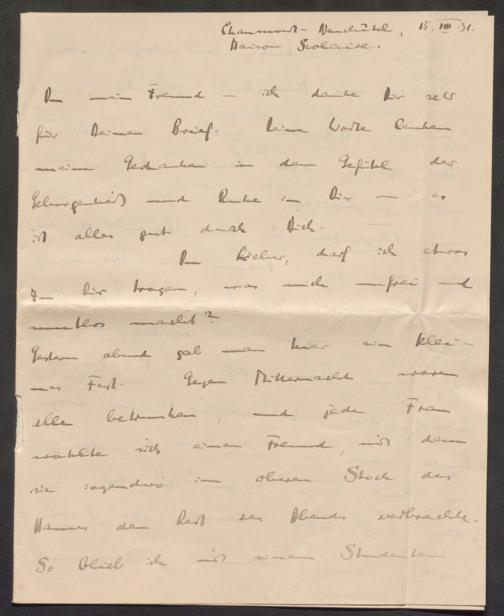 Chaumont-Neuchâtel, 15. VIII. 31.
Maison Scolaire.
Du mein Freund – ich danke Dir sehr
für Deinen Brief. Deine Worte lenken
meine Gedanken in dem Gefühl der
Geborgenheit und Ruhe in Dir – es
ist alles gut durch Dich.
Du Lieber, darf ich etwas
zu Dir tragen, was mich unfrei und
mutlos macht?
Gestern abend gab man hier ein klei-
nes Fest. Gegen Mitternacht waren
alle betrunken, und jede Frau
wählte sich einen Freund, mit dem
sie irgendwo im oberen Stock des
Hauses den Rest des Abends verbrachte.
So blieb ich mit einem Studenten